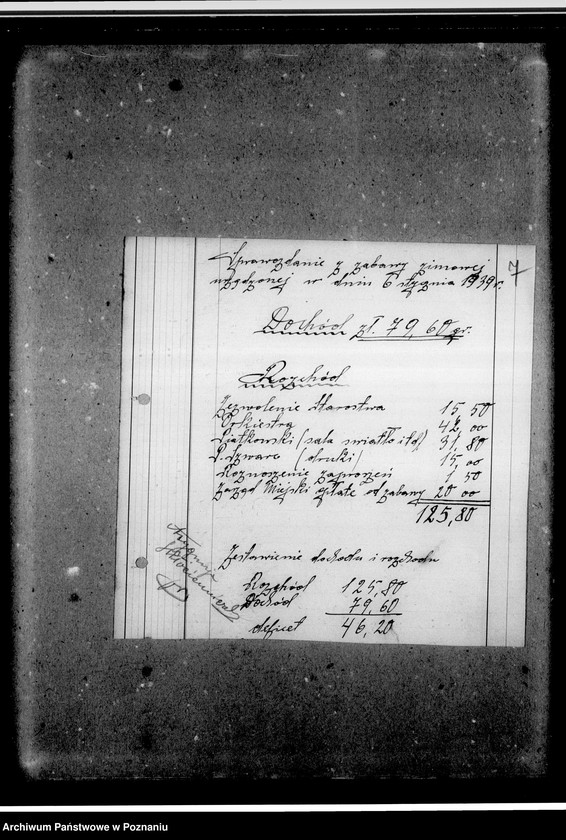 Sprawozdanie z zabawy zimowej
urządzonej w dniu 6 stycznia 1939 r.
7
Dochód zł. 79,60 gr.
Rozchód
Zezwolenie Starostwa 15,50
Orkiestra 42,00
Piątkowski (sala światło itd) 31,80
(druki) 15,00
Roznoszenie zaproszeń 1,50
Zarząd Miejski opłata od zabawy 20 00
125,80
Zestawienie dochodu i rozchodu
Rozchód 125,80
Dochód 79,60
deficet 46,20
Archiwum Państwowe w Poznaniu